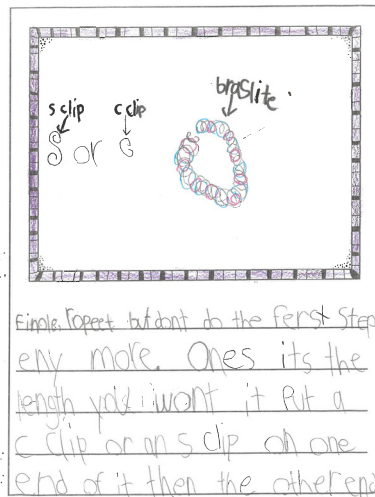 braslite
s clip c clip
S or c
Finole. ropeet but dont do the ferst step
eny more. Ones its the
length you wont it Put a
c clip or an s clip on one
end of it then the other end